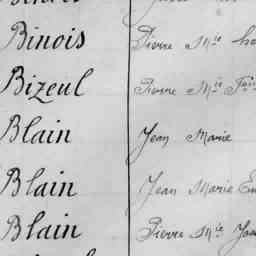 Binois Pierre Mie
Bizeul Pierre Mie
Blain Jean Marie
Blain Jean Marie
Blain Pierre Mie